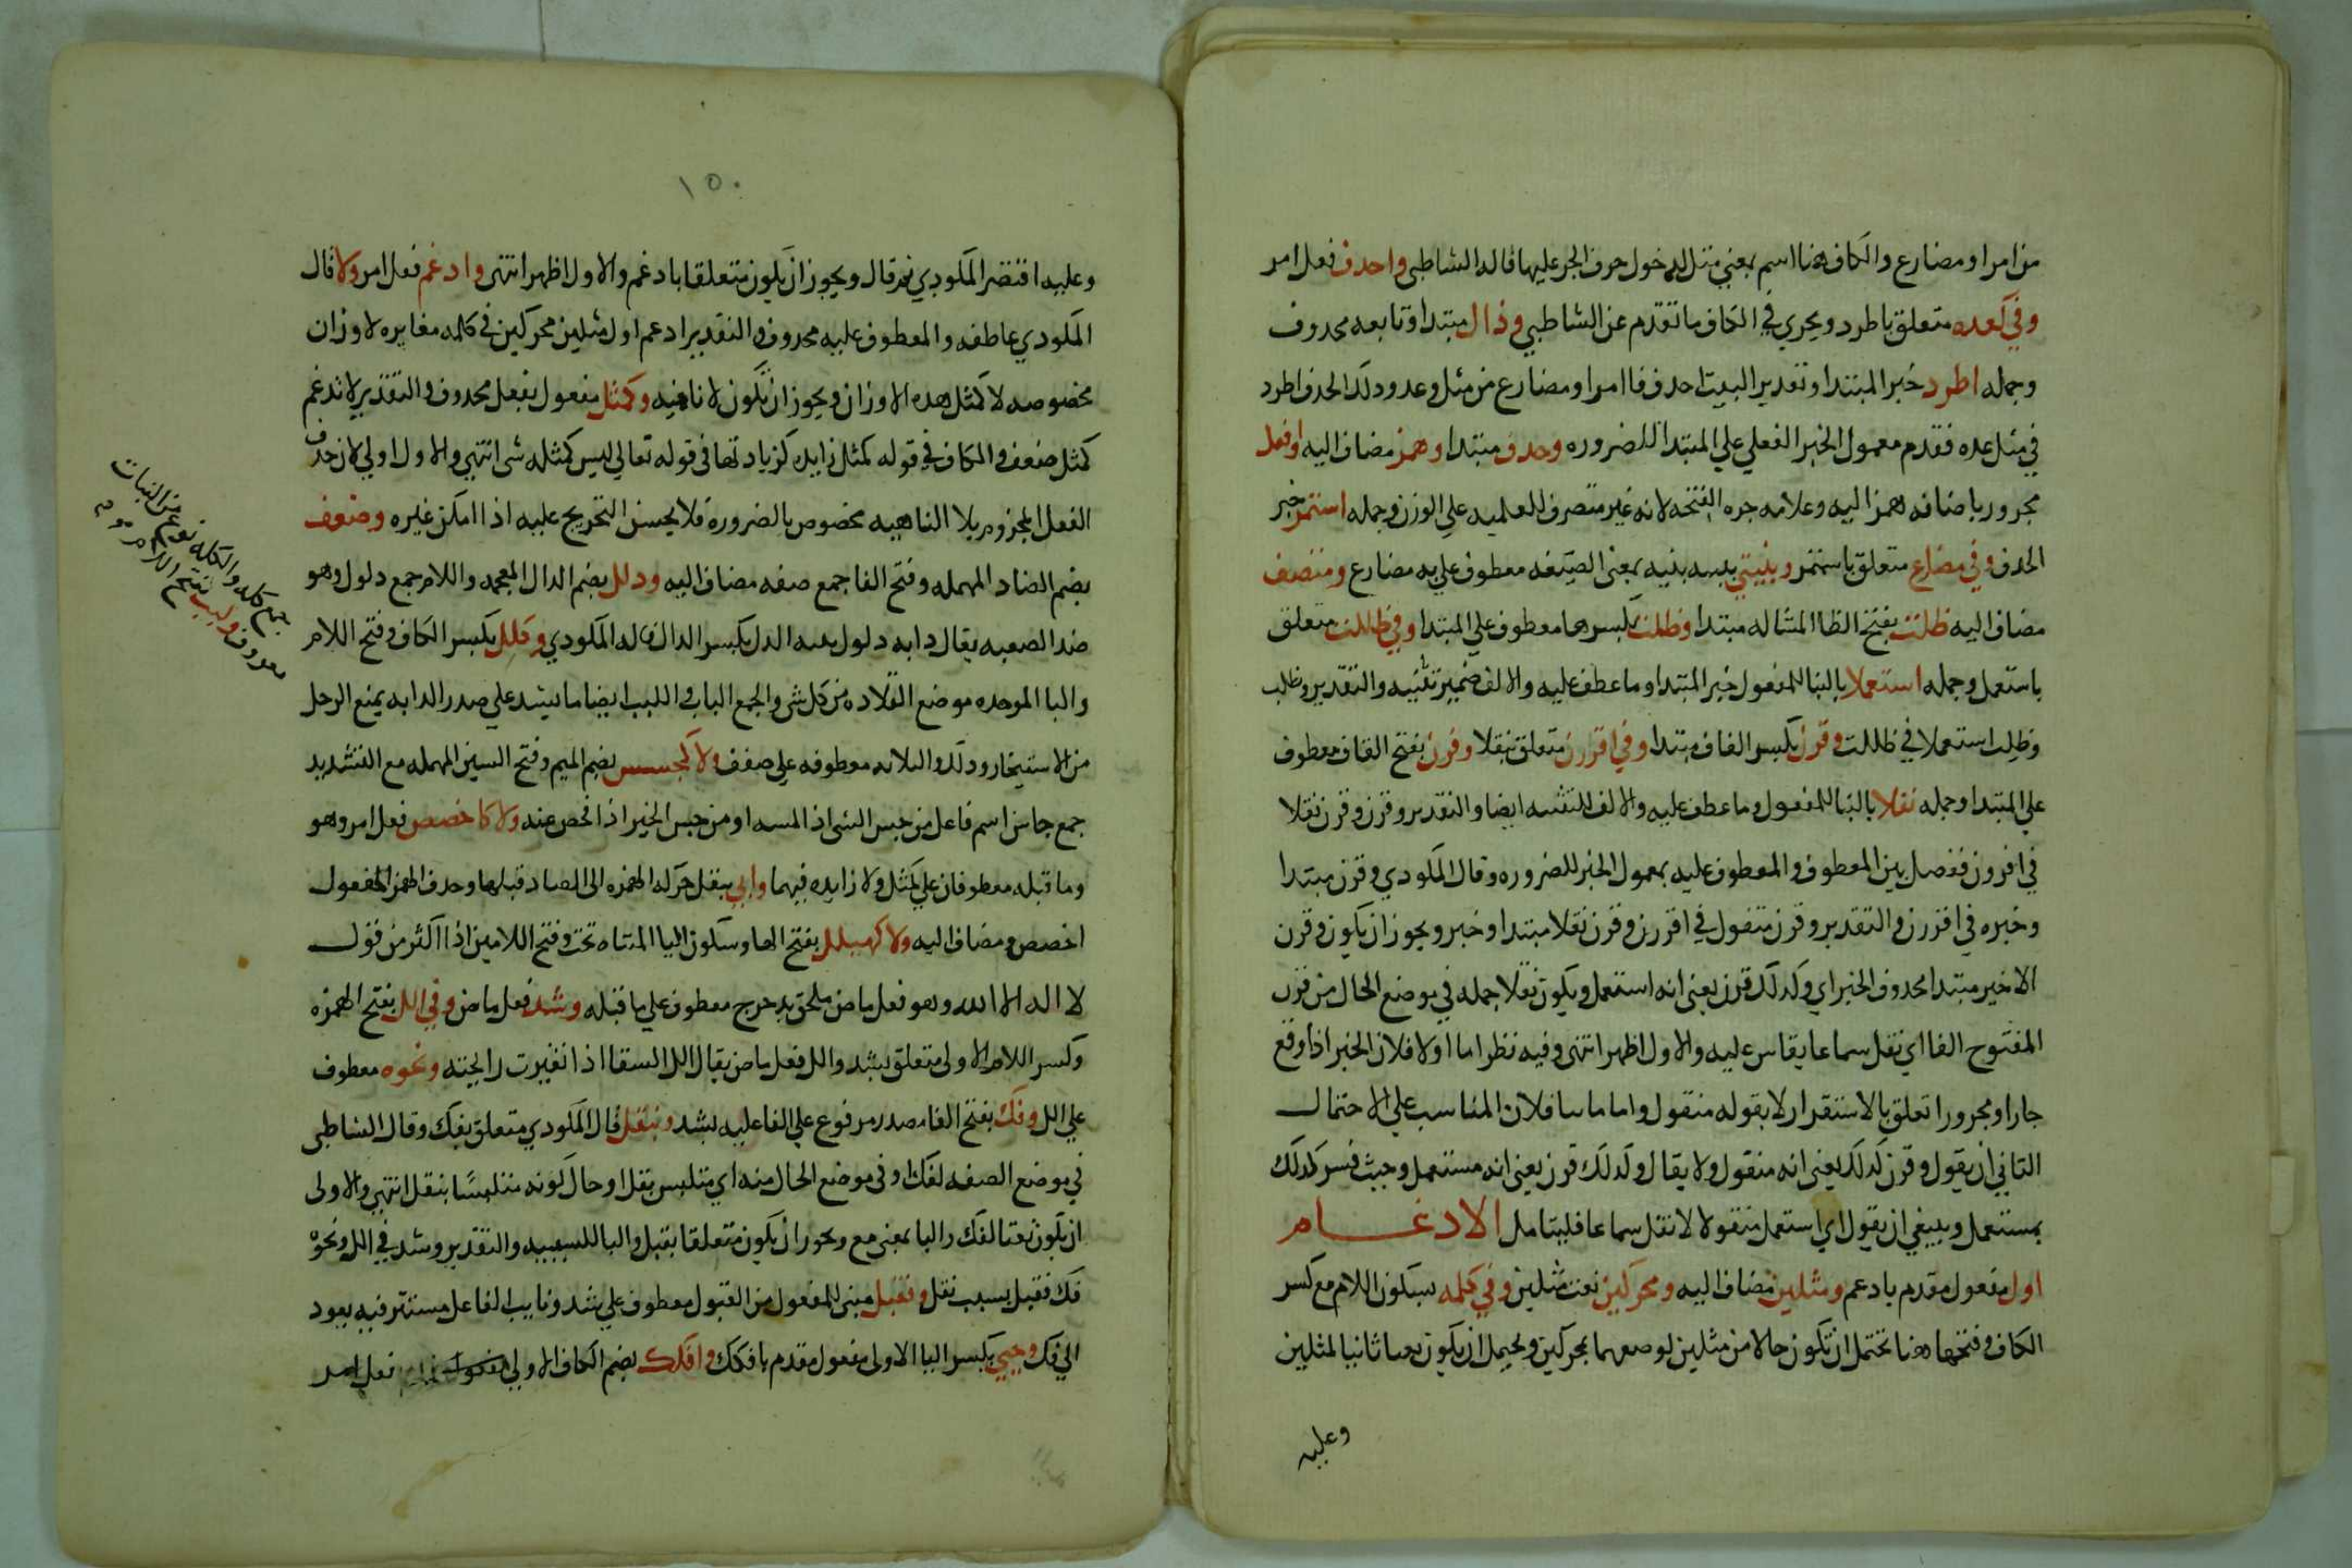 من امر او مضارع والكاف هنا اسم بمعني مثل لدخول حرف الجر عليها قاله الشاطبي واحذف فعل امر
وفي كعده متعلق باطرد ويجري في الكاف ما تقدم عن الشاطبي وذاك مبتدا وتابعه محدوف
وجمله اطرد خبر المبتدا وتقدير البيت احدف فا امر او مضارع من مثل وعد وذلك الحذف اطرد
في مثل عده فقدم معمول الخبر الفعلي علي المبتدا للضروره وحدف مبتدا وهمز مضاف اليه وافعل
مجرور باضافه همز اليه وعلامه جره الفتحه لانه غير متصرف للعلميه علي الوزن وجمله استمر خبر
الحذف وفي مضارع متعلق باستمر وبنيتي تثنيه بنيه بمعني الصيغه معطوف علي به مضارع ومتصف
مضاف اليه ظلت بفتح الظا المشاله مبتدا وظلت بكسرها معطوف علي المبتدا وفي ظللت متعلق
باستعمل وجمله استعملا بالبنا للمفعول خبر المبتدا وما عطف عليه والالف ضمير تثنيه والتقدير وظلت
وظلت استعملا في ظللت وقرن بكسر القاف مبتدا وفي اقررن متعلق بنقلا وقرن بفتح القاف معطوف
علي المبتدا وجمله نقلا بالبنا للمفعول وما عطف عليه والالف للتثنيه ايضا والتقدير وقرن وقرن نقلا
في اقررن ففصل بين المعطوف والمعطوف عليه بمعمول الخبر للضروره وقال المكودي وقرن مبتدا
وخبره في اقررن والتقدير وقرن منقول في اقررن وقرن نقلا مبتدا وخبر ويجوز ان يكون وقرن
الاخير مبتدا محدوف الخبر اي وكذلك قرن يعني انه استعمل ويكون نقلا جمله في موضع الحال من قرن
المفتوح الفا اي نقل سماعا يقاس عليه والاول اظهر انتهي وفيه نظر اما اولا فلان الخبر اذا وقع
جارا ومجرورا تعلق بالاستقرار لا بقوله منقول واما ثانيا فلان المناسب علي الاحتمال
الثاني ان يقول وقرن كذلك يعني انه منقول ولا يقال وكذلك قرن يعني انه مستعمل وحيث فسر كذلك
بمستعمل وينبغي ان يقول اي استعمل منقولا لا نقل سماعا فليتامل الادغـــام
اول مفعول مقدم بادغم ومثلين مضاف اليه ومحركين نعت مثلين وفي كلمه بسكون اللام مع كسر
الكاف وفتحها هنا تحتمل ان تكون حالا من مثلين لوصفهما بمحركين ويحتمل ان يكون نعتا ثانيا لمثلين
وعليه
١٥٠
وعليه اقتصر المكودي ثم قال ويجوز ان يكون متعلقا بادغم والاول اظهر انتهي وادغم فعل امر ولا قال
المكودي عاطفه والمعطوف عليه محدوف والتقدير ادغم اول مثلين محركين في كلمه مغايره لاوزان
مخصوصه لا كمثل هده الاوزان ويجوز ان تكون لا ناهيه وكمثل مفعول بفعل محدوف والتقدير لا تدغم
كمثل صفف والكاف في قوله كمثل زايده كزيادتها في قوله تعالي ليس كمثله شي انتهي والاول اولي لان حذف
الفعل المجزوم بلا الناهيه مخصوص بالضروره فلا يحسن التخريج عليه اذا امكن غيره وصفف
بضم الصاد المهمله وفتح الفا جمع صفه مضاف اليه وذلل بضم الدال المعجمه واللام جمع دلول وهو
ضد الصعبه يقال دابه دلول بينه الدل بكسر الدال قاله المكودي وكلل بكسر الكاف وفتح اللام
جمع كله والكله نوع من الثياب
معروف ولبب بفتح اللام
والبا الموحده موضع القلاده من كل شي والجمع الباب واللبب ايضا ما يشد علي صدر الدابه يمنع الرحل
من الاستيخار وذلك والثلاثه معطوفه علي صفف ولا كجسس بضم الجيم وفتح السين المهمله مع التشديد
جمع جاس اسم فاعل من جس الشي اذا لمسه او من جس الخبر اذا فحص عنه ولا كاخصص فعل امر وهو
وما قبله معطوفان علي كمثل ولا زايده فيهما وابي بنقل حركه الهمزه الي الصاد قبلها وحدف الهمز مفعول
اخصص ومضاف اليه ولا كهيلل بفتح الها وسكون اليا المثناه تحت وفتح اللامين اذا اكثر من قول
لا اله الا الله وهو فعل ماض ملحق بدحرج معطوف علي ما قبله وشذ فعل ماض وفي الل بفتح الهمزه
وكسر اللام الاولي متعلق بشذ والل فعل ماض يقال الل السقا اذا تغيرت رايحته ونحوه معطوف
علي الل وفك بفتح الفا مصدر مرفوع علي الفاعليه بشذ وبنقل قال المكودي متعلق بفك وقال الشاطبي
في موضع الصفه لفك او في موضع الحال منه اي متلبس بنقل او حال كونه متلبسا بنقل انتهي والاولي
ان يكون نعتا لفك والبا بمعني مع ويجوز ان يكون متعلقا بقبل والبا للسببيه والتقدير وشذ في الل ونحوه
فك فقبل بسبب نقل وفقبل مبني للمفعول من القبول معطوف علي شذ ونايب الفاعل مستتر فيه يعود
الي فك وحيي بكسر اليا الاولي مفعول مقدم بافكك وافكك بضم الكاف الاولي فعل امر